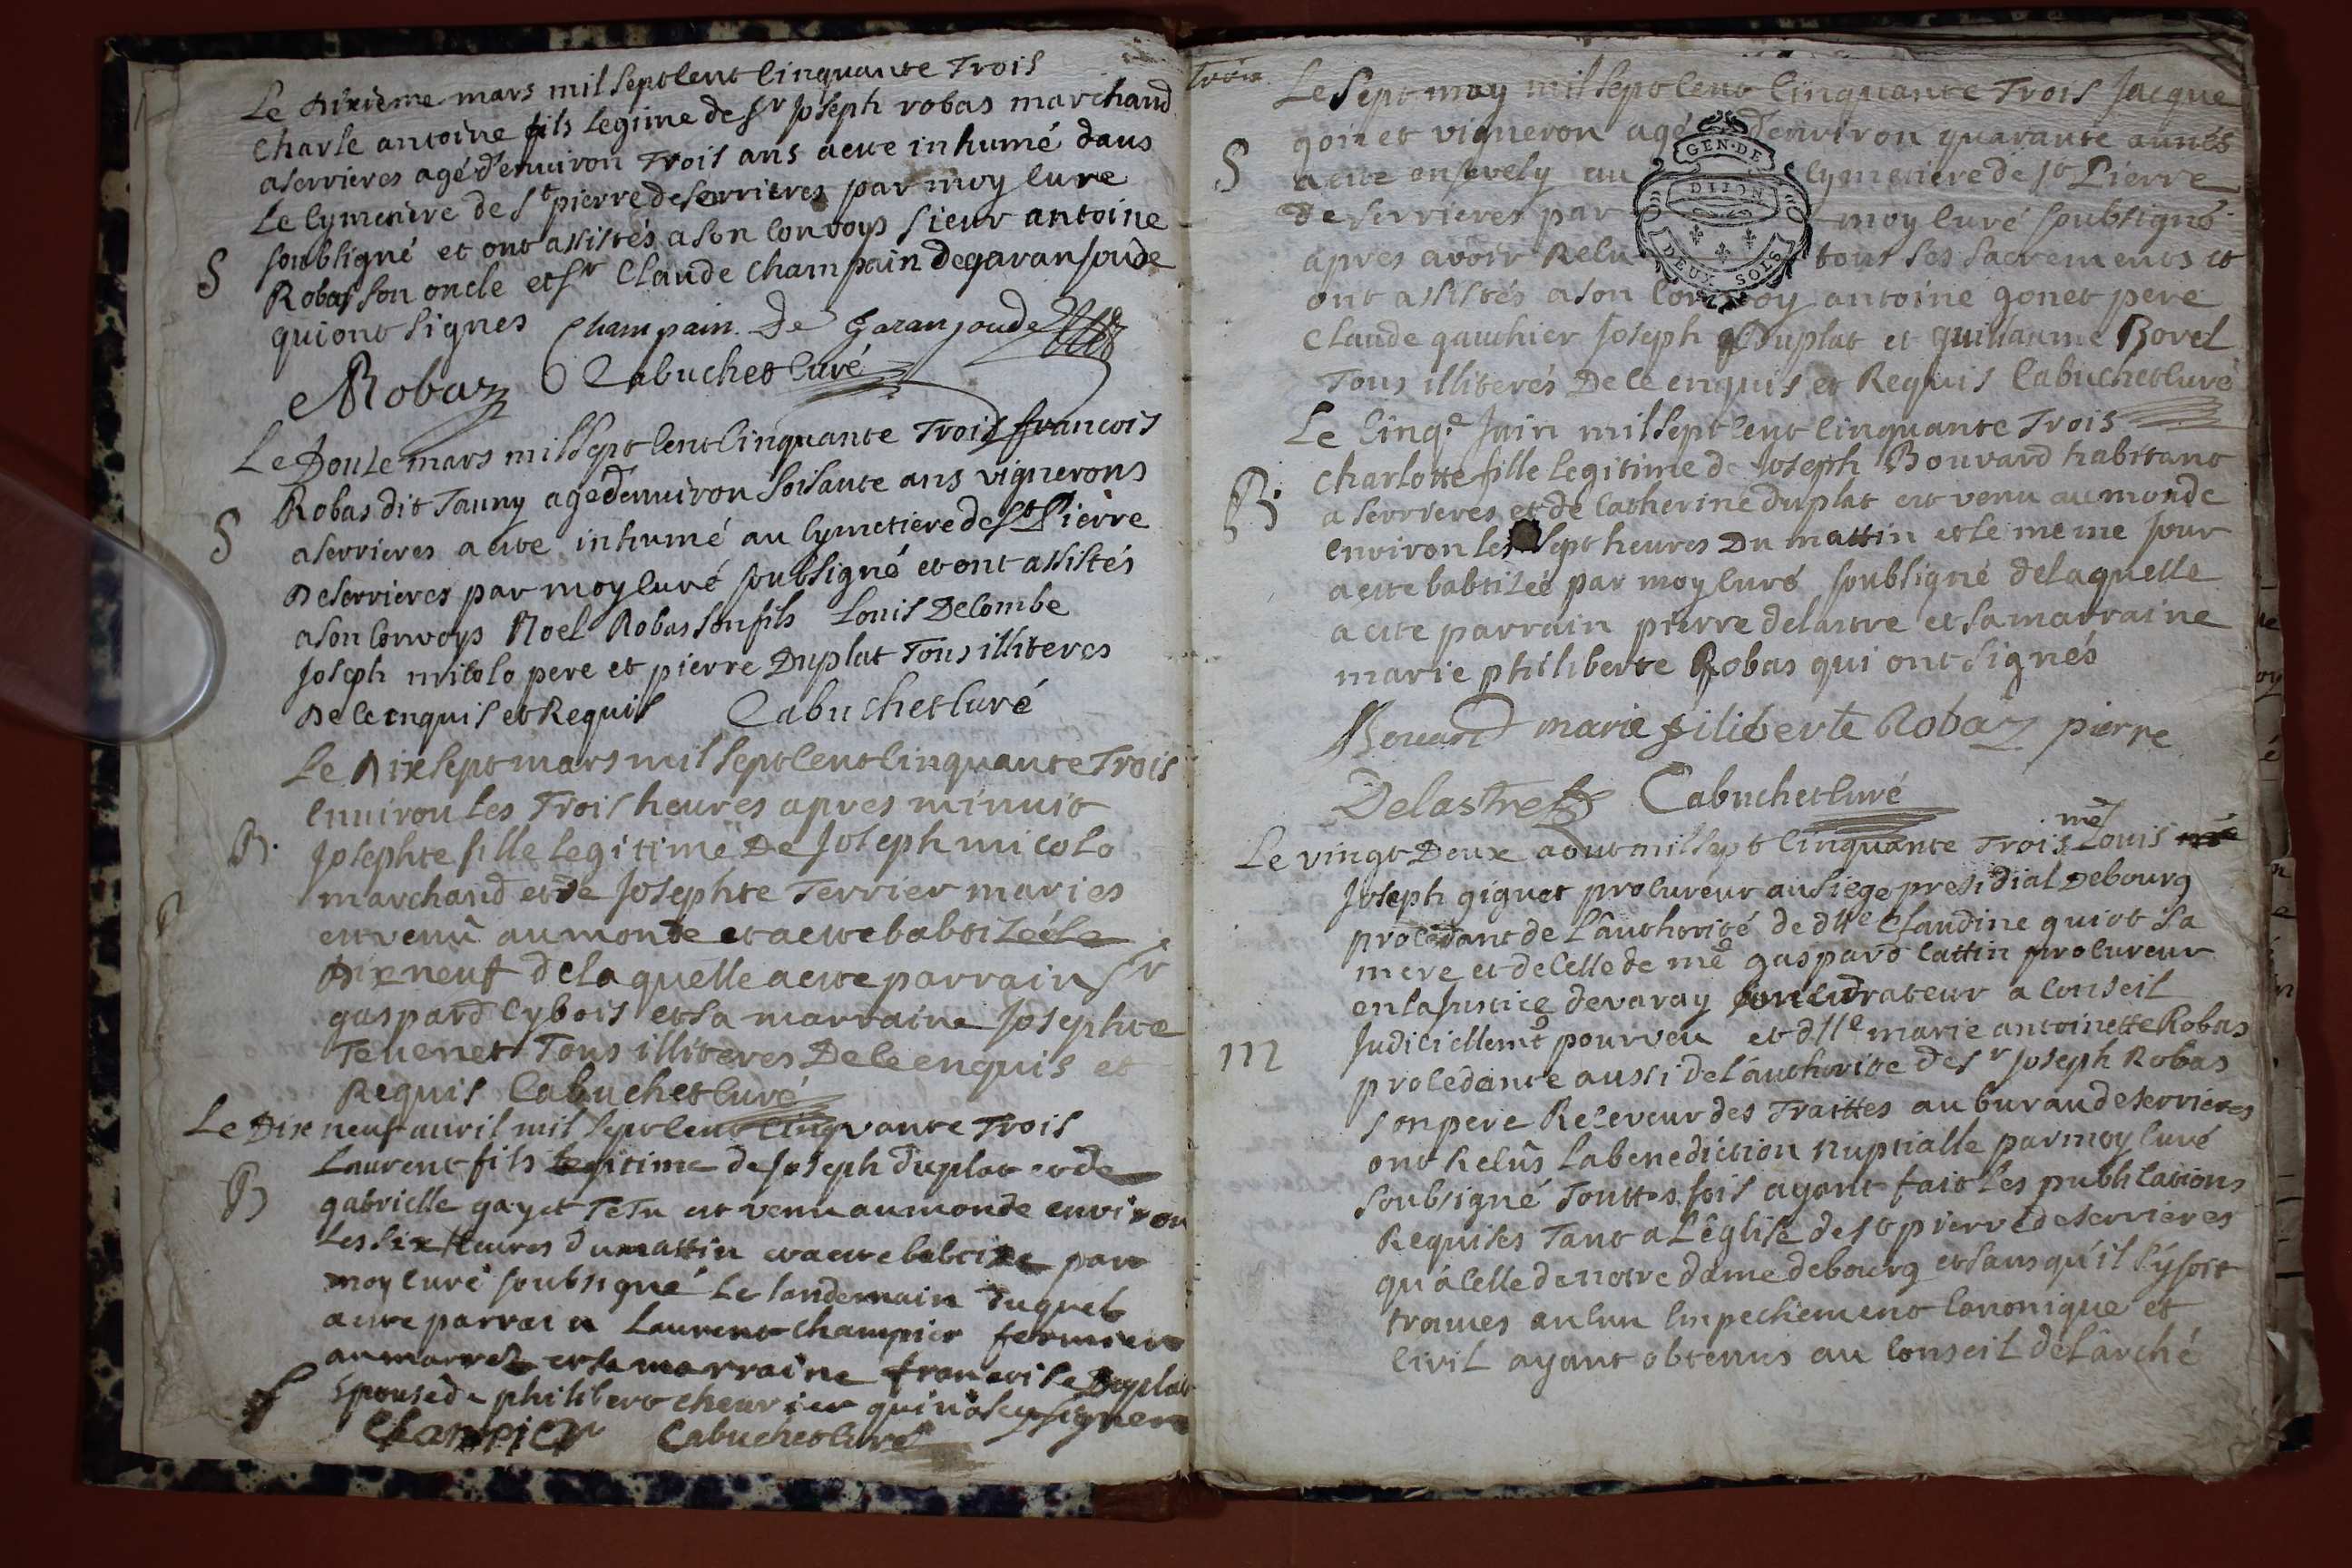 Le dixieme mars mil sept cent cinquante Trois
charle antoine fils legime de sr joseph robas marchand
a serrieres agé d'environ Trois ans a ette inhumé dans
Le cymetiere de st pierre de serrieres par moy curé
S
soubsigné et ont assistés a son convoys sieur antoine
Robas son oncle et sr Claude champain de garanjoude
qui ont signes Champain De Garanjoude
Robaz Cabuchet curé
Le Douze mars mil sept cent cinquante Trois francois
Robas dit Tauny agé d'environ soisante ans vignerons
S
a serrieres a ette inhumé au cymetiere de st Pierre
De serrieres par moy curé soubsigné et ont assistés
a son convoys Noel Robas son fils Louis Decombe
Joseph micolo pere et pierre Duplat Tous illiteres
De ce enquis et Requis Cabuchet curé
Le Dix sept mars mil sept cent cinquante Trois
Environ les Trois heures apres minuit
B.
Josephte fille legitime De Joseph micolo
marchand et de Josephte Terrier maries
est venû au monde et a ette babtizéé le
Dix neuf de laquelle a ette parrain sr
gaspard Cybois et sa marraine Josephte
Tevenet Tous illiteres De ce enquis et
Requis Cabuchet curé
Le Dix neuf avril mil sept cent cinqvante Trois
Laurent fils legitime de Joseph duplat et de
B
gabrielle gayet TeTu est venu au monde environ
Les six heures du mattin et a ette babtize par
moy curé soubsigné Le landemain duquel
a ette parrain Laurent champier fermier
au marret et sa marraine francoise Duplat
Epouse de philibert cheurier qui n'a sçu signer
Champier Cabuchet curé
Trois
Le Sept may mil sept cent cinquante Trois Jacque
gonet vigneron agé d'environ quarante annés
S
a ette ensevely au cymetiere de st Pierre
de serrieres par moy curé soubsigné
apres avoir Recu tous ses sacrements et
ont assistés a son convoy antoine gonet pere
Claude gauthier Joseph Duplat et guillaume Borel
Tous illiterés De ce enquis et Requis Cabuchet curé
GEN. DE
DIJON
DEUX SOLS
Le Cinqe Juin mil sept cent cinquante Trois
charlotte fille legitime de Joseph Bouvard habitant
B.
a serrieres et de Catherine duplat est venu au monde
environ les sept heures Du mattin et le meme jour
a ette babtizéé par moy curé soubsigné de laquelle
a ette parrain pierre delastre et sa marraine
marie philiberte Robas qui ont signés
Bouard marie filiberte Robaz pierre
Delastre Cabuchet curé
Le vingt Deux aout mil sept cinquante Trois me Louis
Joseph giguet procureur au siege presidial De bourg
procedant de L'authorité de dlle Claudine guiot sa
mere et de celle de me gaspard cattin procureur
en la justice de varay son curateur a conseil
m
Judiciellemt pourveu et dlle marie antoinette Robas
procedante aussi de l'authorite de sr Joseph Robas
son pere Receveur des Traittes au burau de serrieres
ont Recûs La benediction nuptialle par moy curé
soubsigné Touttes fois ayant fait Les publications
Requises Tant a L'église de st pierre de serrieres
qu'à celle de notre dame de bourg et sans qu'il s'y soit
trouves aucun Empechement canonique et
civil ayant obtenus au conseil de l'arché